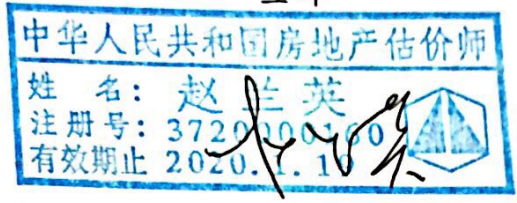 中华人民共和国房地产估价师
姓 名: 赵兰英
注册号: 3720000160
有效期止 2020.1.10